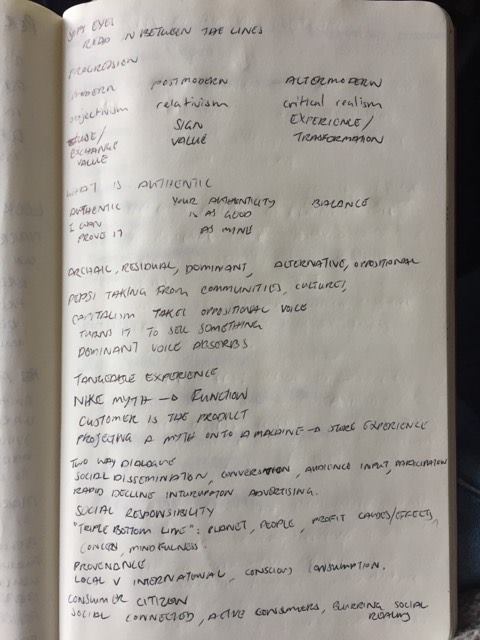 SOFT EYES
READ IN BETWEEN THE LINES
PROGRESSION
MODERN POSTMODERN ALTERMODERN
objectivism relativism critical realism
USE/ SIGN EXPERIENCE/
EXCHANGE VALUE TRANSFORMATION
VALUE
WHAT IS AUTHENTIC
AUTHENTIC YOUR AUTHENTICITY BALANCE
I CAN IS AS GOOD
PROVE IT AS MINE
ARCHAIC, RESIDUAL, DOMINANT, ALTERNATIVE, OPPOSITIONAL
PEPSI TAKING FROM COMMUNITIES, CULTURES,
CAPITALISM TAKES OPPOSITIONAL VOICE
TURNS IT TO SELL SOMETHING
DOMINANT VOICE ABSORBS
TANGEABLE EXPERIENCE
NIKE MYTH → FUNCTION
CUSTOMER IS THE PRODUCT
PROJECTING A MYTH ONTO A MACHINE → STORE EXPERIENCE
TWO WAY DIALOGUE
SOCIAL DISSEMINATION, CONVERSATION, AUDIENCE INPUT, PARTICIPATION
RAPID DECLINE INTURUPTION ADVERTISING.
SOCIAL RESPONSIBILITY
"TRIPLE BOTTOM LINE": PLANET, PEOPLE, PROFIT CAUSES/EFFECTS,
CONCERN, MINDFULNESS.
PROVENANCE
LOCAL V INTERNATIONAL, CONSCIOUS CONSUMPTION.
CONSUMER CITIZEN
SOCIAL CONNECTED, ACTIVE CONSUMERS, BLURRING SOCIAL
REALMS